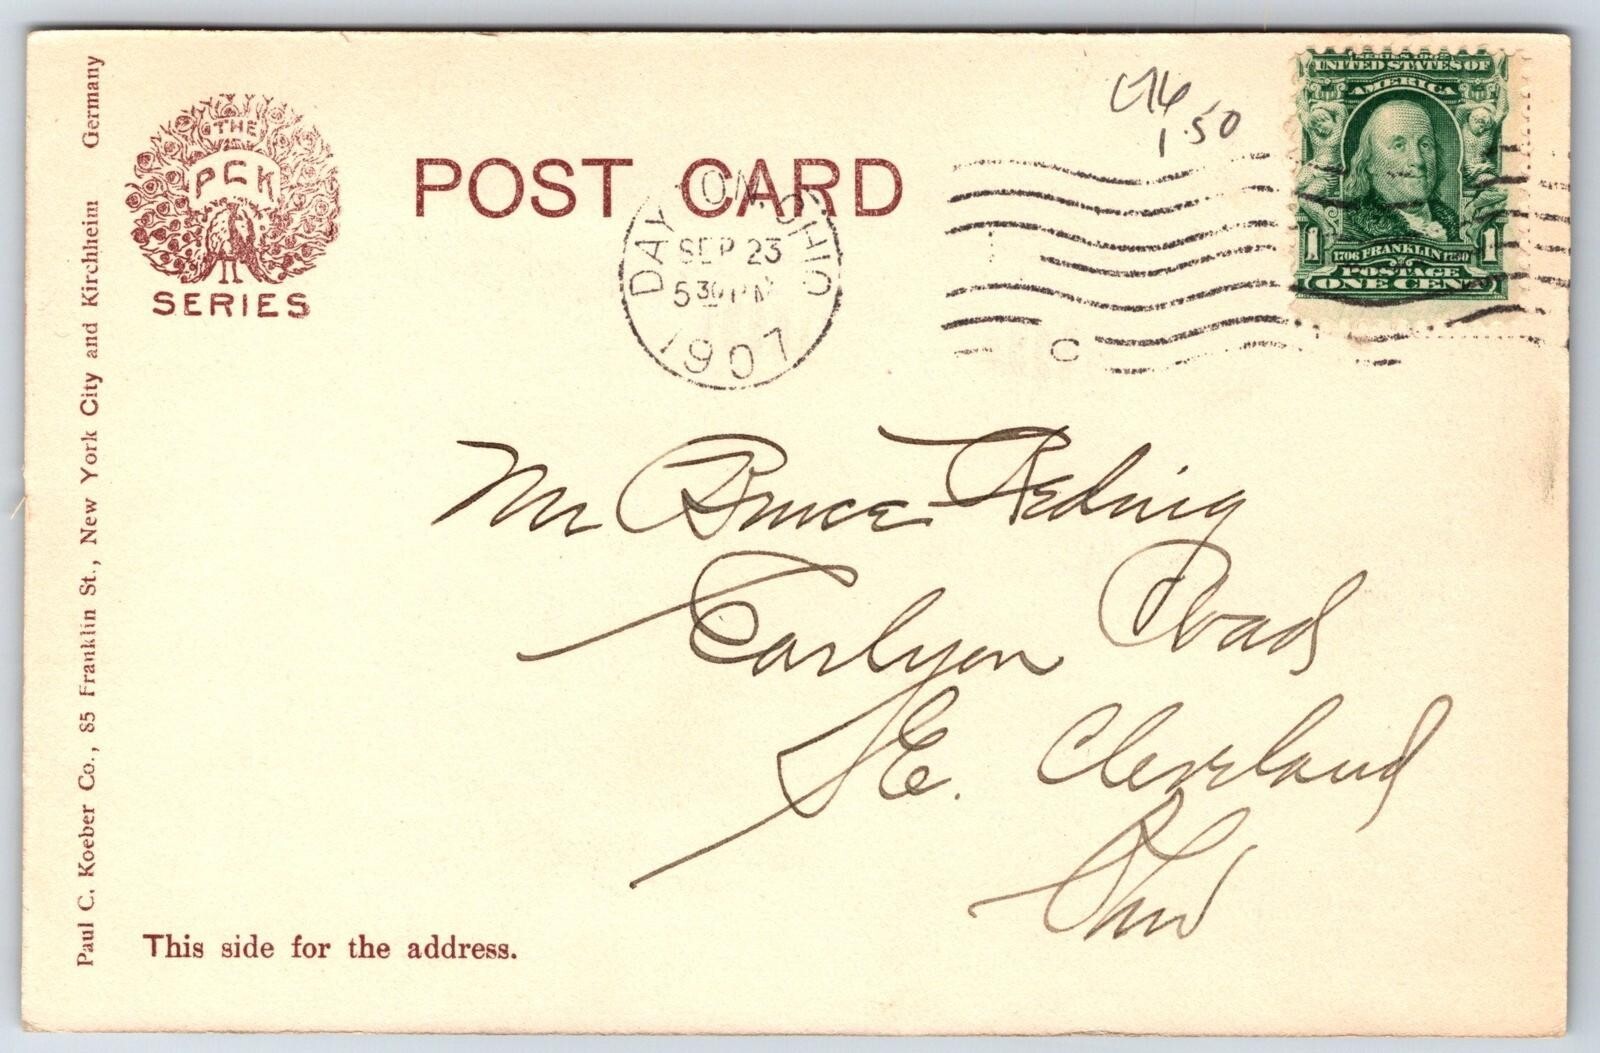 Paul C. Koeber Co., 85 Franklin St., New York City and Kirchheim Germany
THE
PCK
SERIES
POST CARD
DAYTON, OHIO
SEP 23
5 30 PM
1907
1.50
SERIES 1902
UNITED STATES OF
AMERICA
1 1
1706 FRANKLIN 1790
POSTAGE
ONE CENT
Mr Bruce
Carlyon Road
E. Cleveland
Ohio
This side for the address.